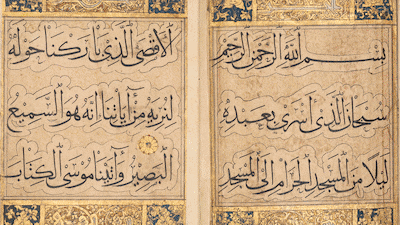 بسم الله الرحمن الرحيم
سبحان الذي اسرى بعبده
ليلا من المسجد الحرام الى المسجد
الاقصى الذي باركنا حوله
لنريه من آياتنا انه هو السميع
البصير وآتينا موسى الكتاب